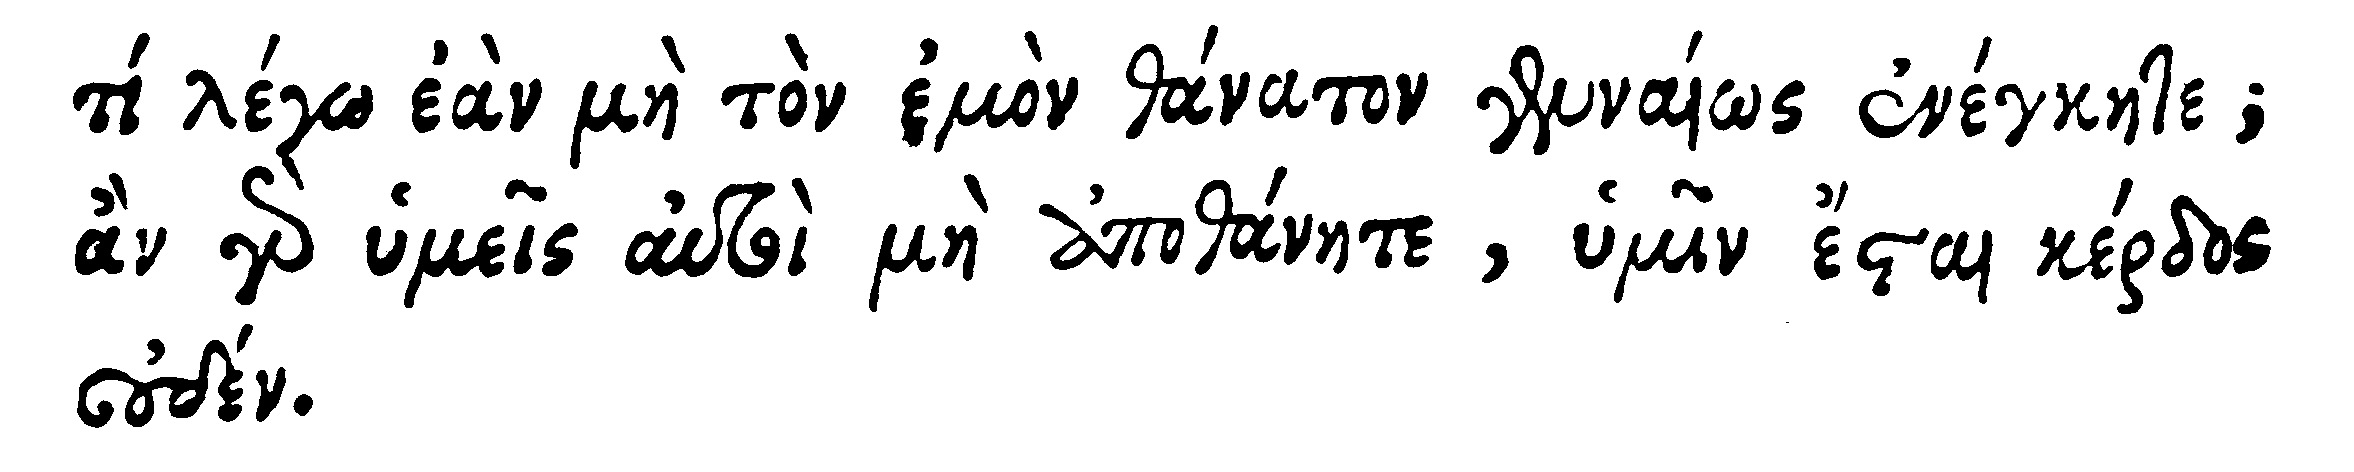 τί λέγω ἐὰν μὴ τὸν ἐμὸν θάνατον γενναίως ἐνέγκητε;
ἂν γὰρ ὑμεῖς αὐτοὶ μὴ ἀποθάνητε, ὑμῖν ἔσται κέρδος
οὐδέν.